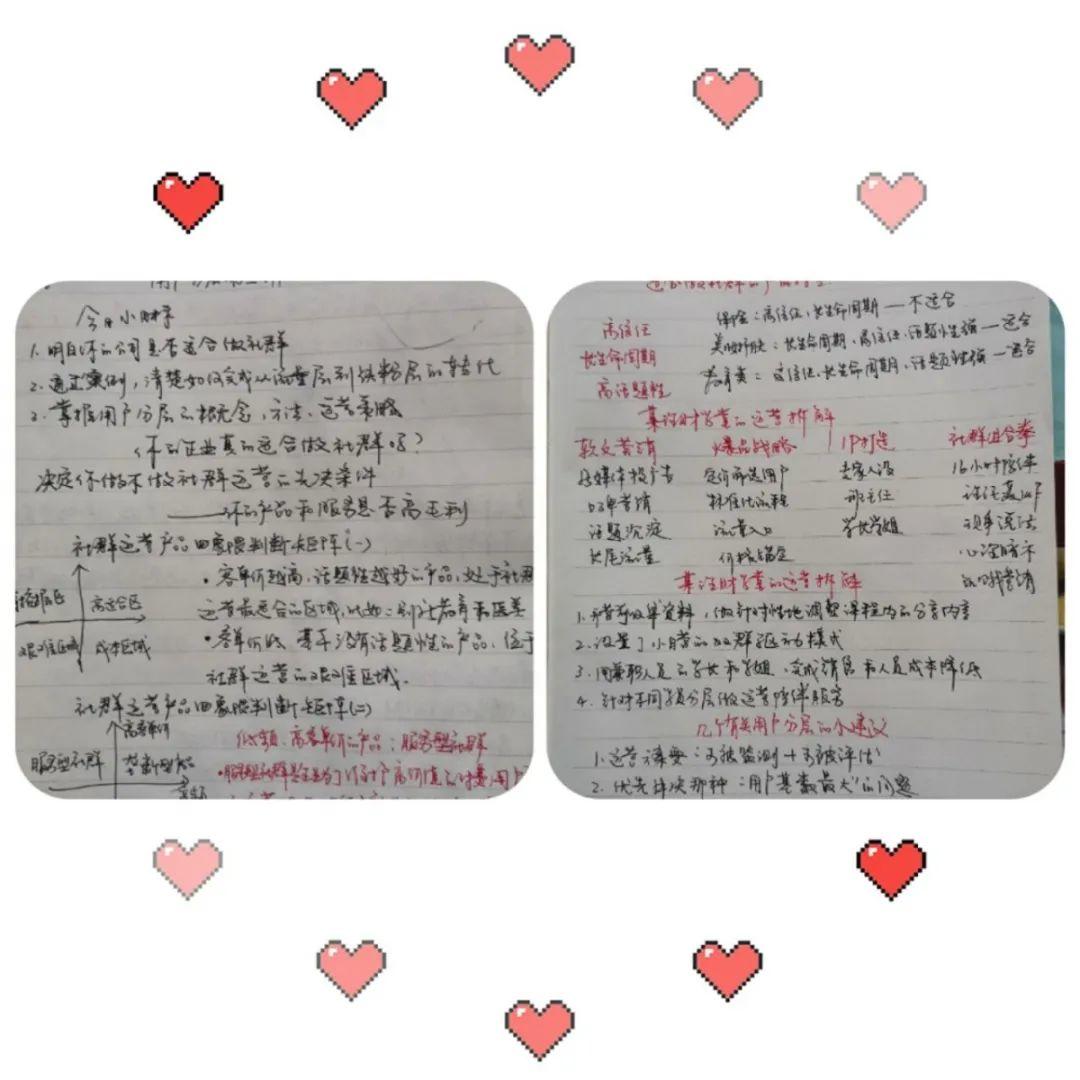 今日小财季
1. 明白你的公司是否适合做社群
2. 通过案例,清楚如何完成从流量层到铁粉层的转化
3. 掌握用户分层的概念,方法、运营策略
你的企业真的适合做社群吗?
决定你做不做社群运营的先决条件
——你的产品和服务是否高毛利
社群运营产品四象限判断矩阵(一)
• 客单价越高,话题性越好的产品,处于社群
运营最适合的区域,比如:别社教育和医美
高适合区
• 客单价低、基本没有话题性的产品,位于
艰难区域
成本区域
社群运营的艰难区域.
社群运营产品四象限判断矩阵(二)
高客单价
低频、高客单价的产品:服务型社群
服务型社群
高信任
长生命周期
高话题性
保险:高信任,长生命周期——不适合
美妆护肤:长生命周期、高信任,话题性强——适合
教育类:高信任、长生命周期,话题性强——适合
某理财学堂的运营拆解
软文营销 爆品战略 IP打造 社群组合拳
自媒体投广告 定价筛选用户 专家人设 16小时陪伴
口碑营销 标准化流程 班主任
话题沉淀 流量入口 学长学姐 现身说法
长尾流量 价格锚定 心理暗示
营销
某理财学堂的运营拆解
1. 开营前收集资料,做针对性地调整课程内的分享内容
2. 设置了小白营的双群驱动模式
3. 用兼职人员的学长和学姐,完成销售和人员成本降低
4. 针对不同学员分层做运营陪伴服务
几个有关用户分层的小建议
1. 运营须要:可被监测+可被评估
2. 优先解决那种“用户基数最大”的问题